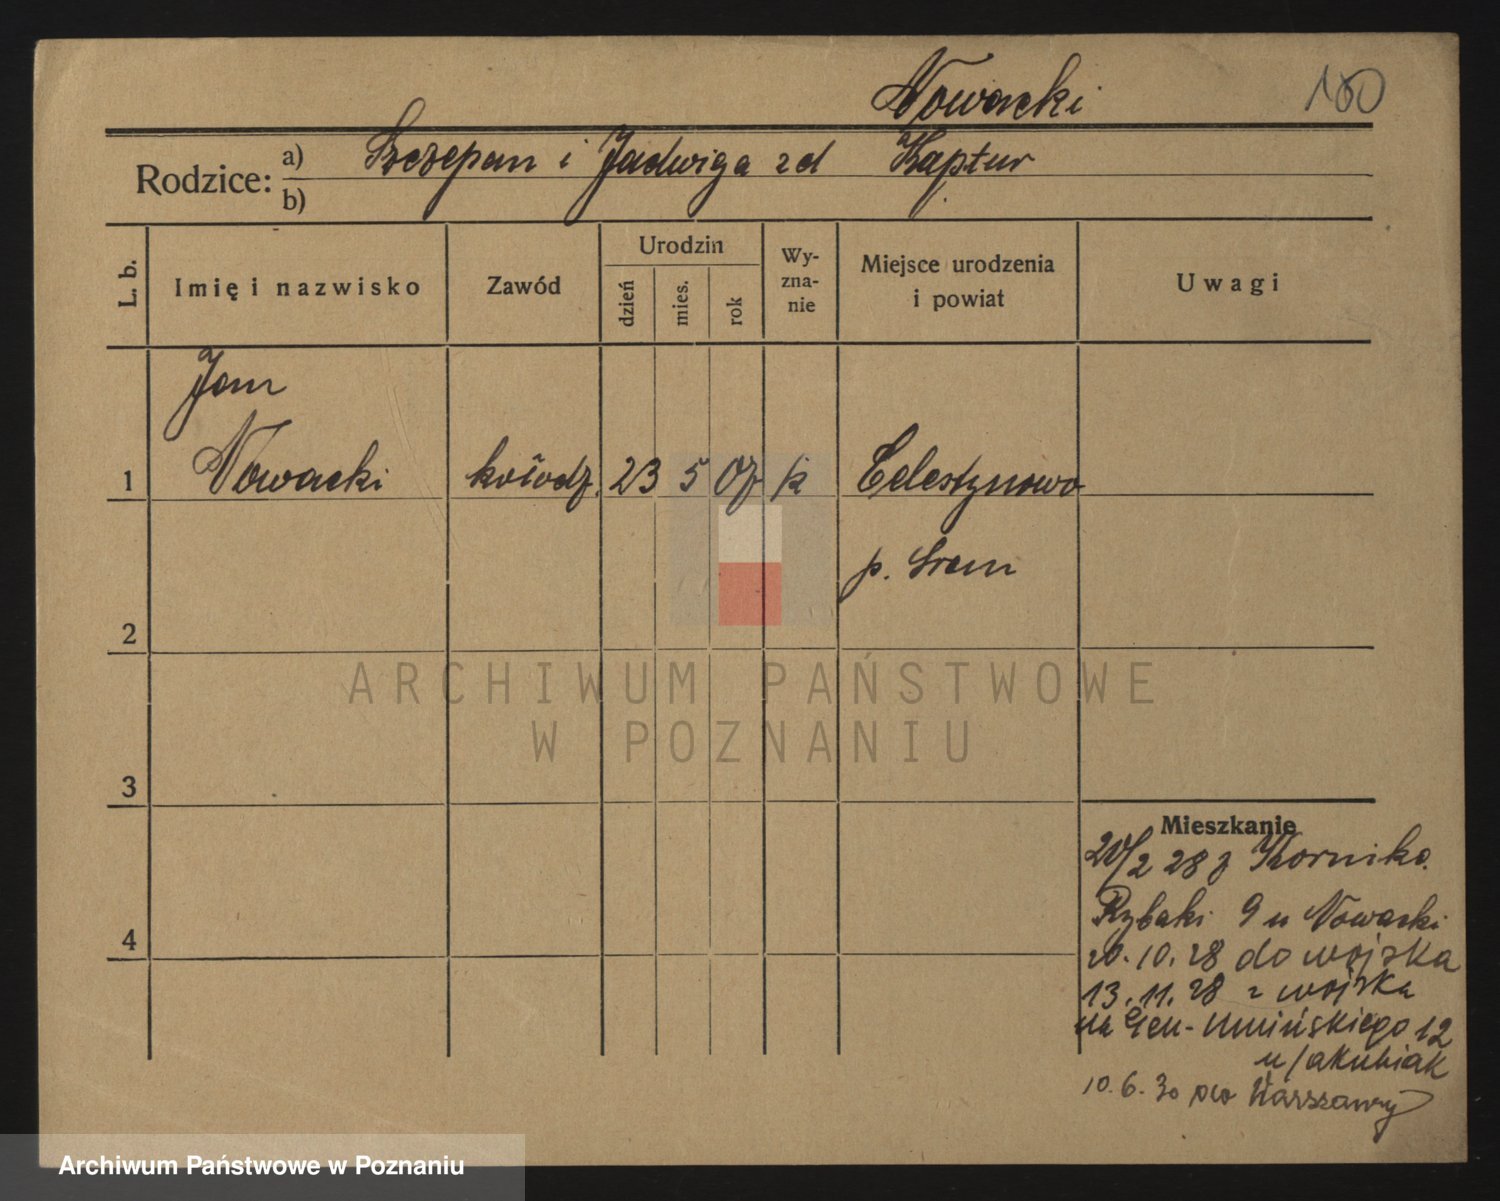 Nowacki
100
Szczepan i Jadwiga zd Kaptur
Rodzice: a)
b)
L. b.
Imię i nazwisko
Zawód
Urodzin
dzień
mies.
rok
Wy-
zna-
nie
Miejsce urodzenia
i powiat
Uwagi
Jan
1 Nowacki kołodz. 23 5 07 k Celestynowo
p. Srem
2
3
4
ARCHIWUM PAŃSTWOWE
W POZNANIU
Mieszkanie
20/2 28 z Kornika.
Rybaki 9 u Nowacki
20.10.28 do wojska
13.11.28 z wojska
na Gen-Umińskiego 12
u Jakubiak
10.6.30 do Warszawy
Archiwum Państwowe w Poznaniu